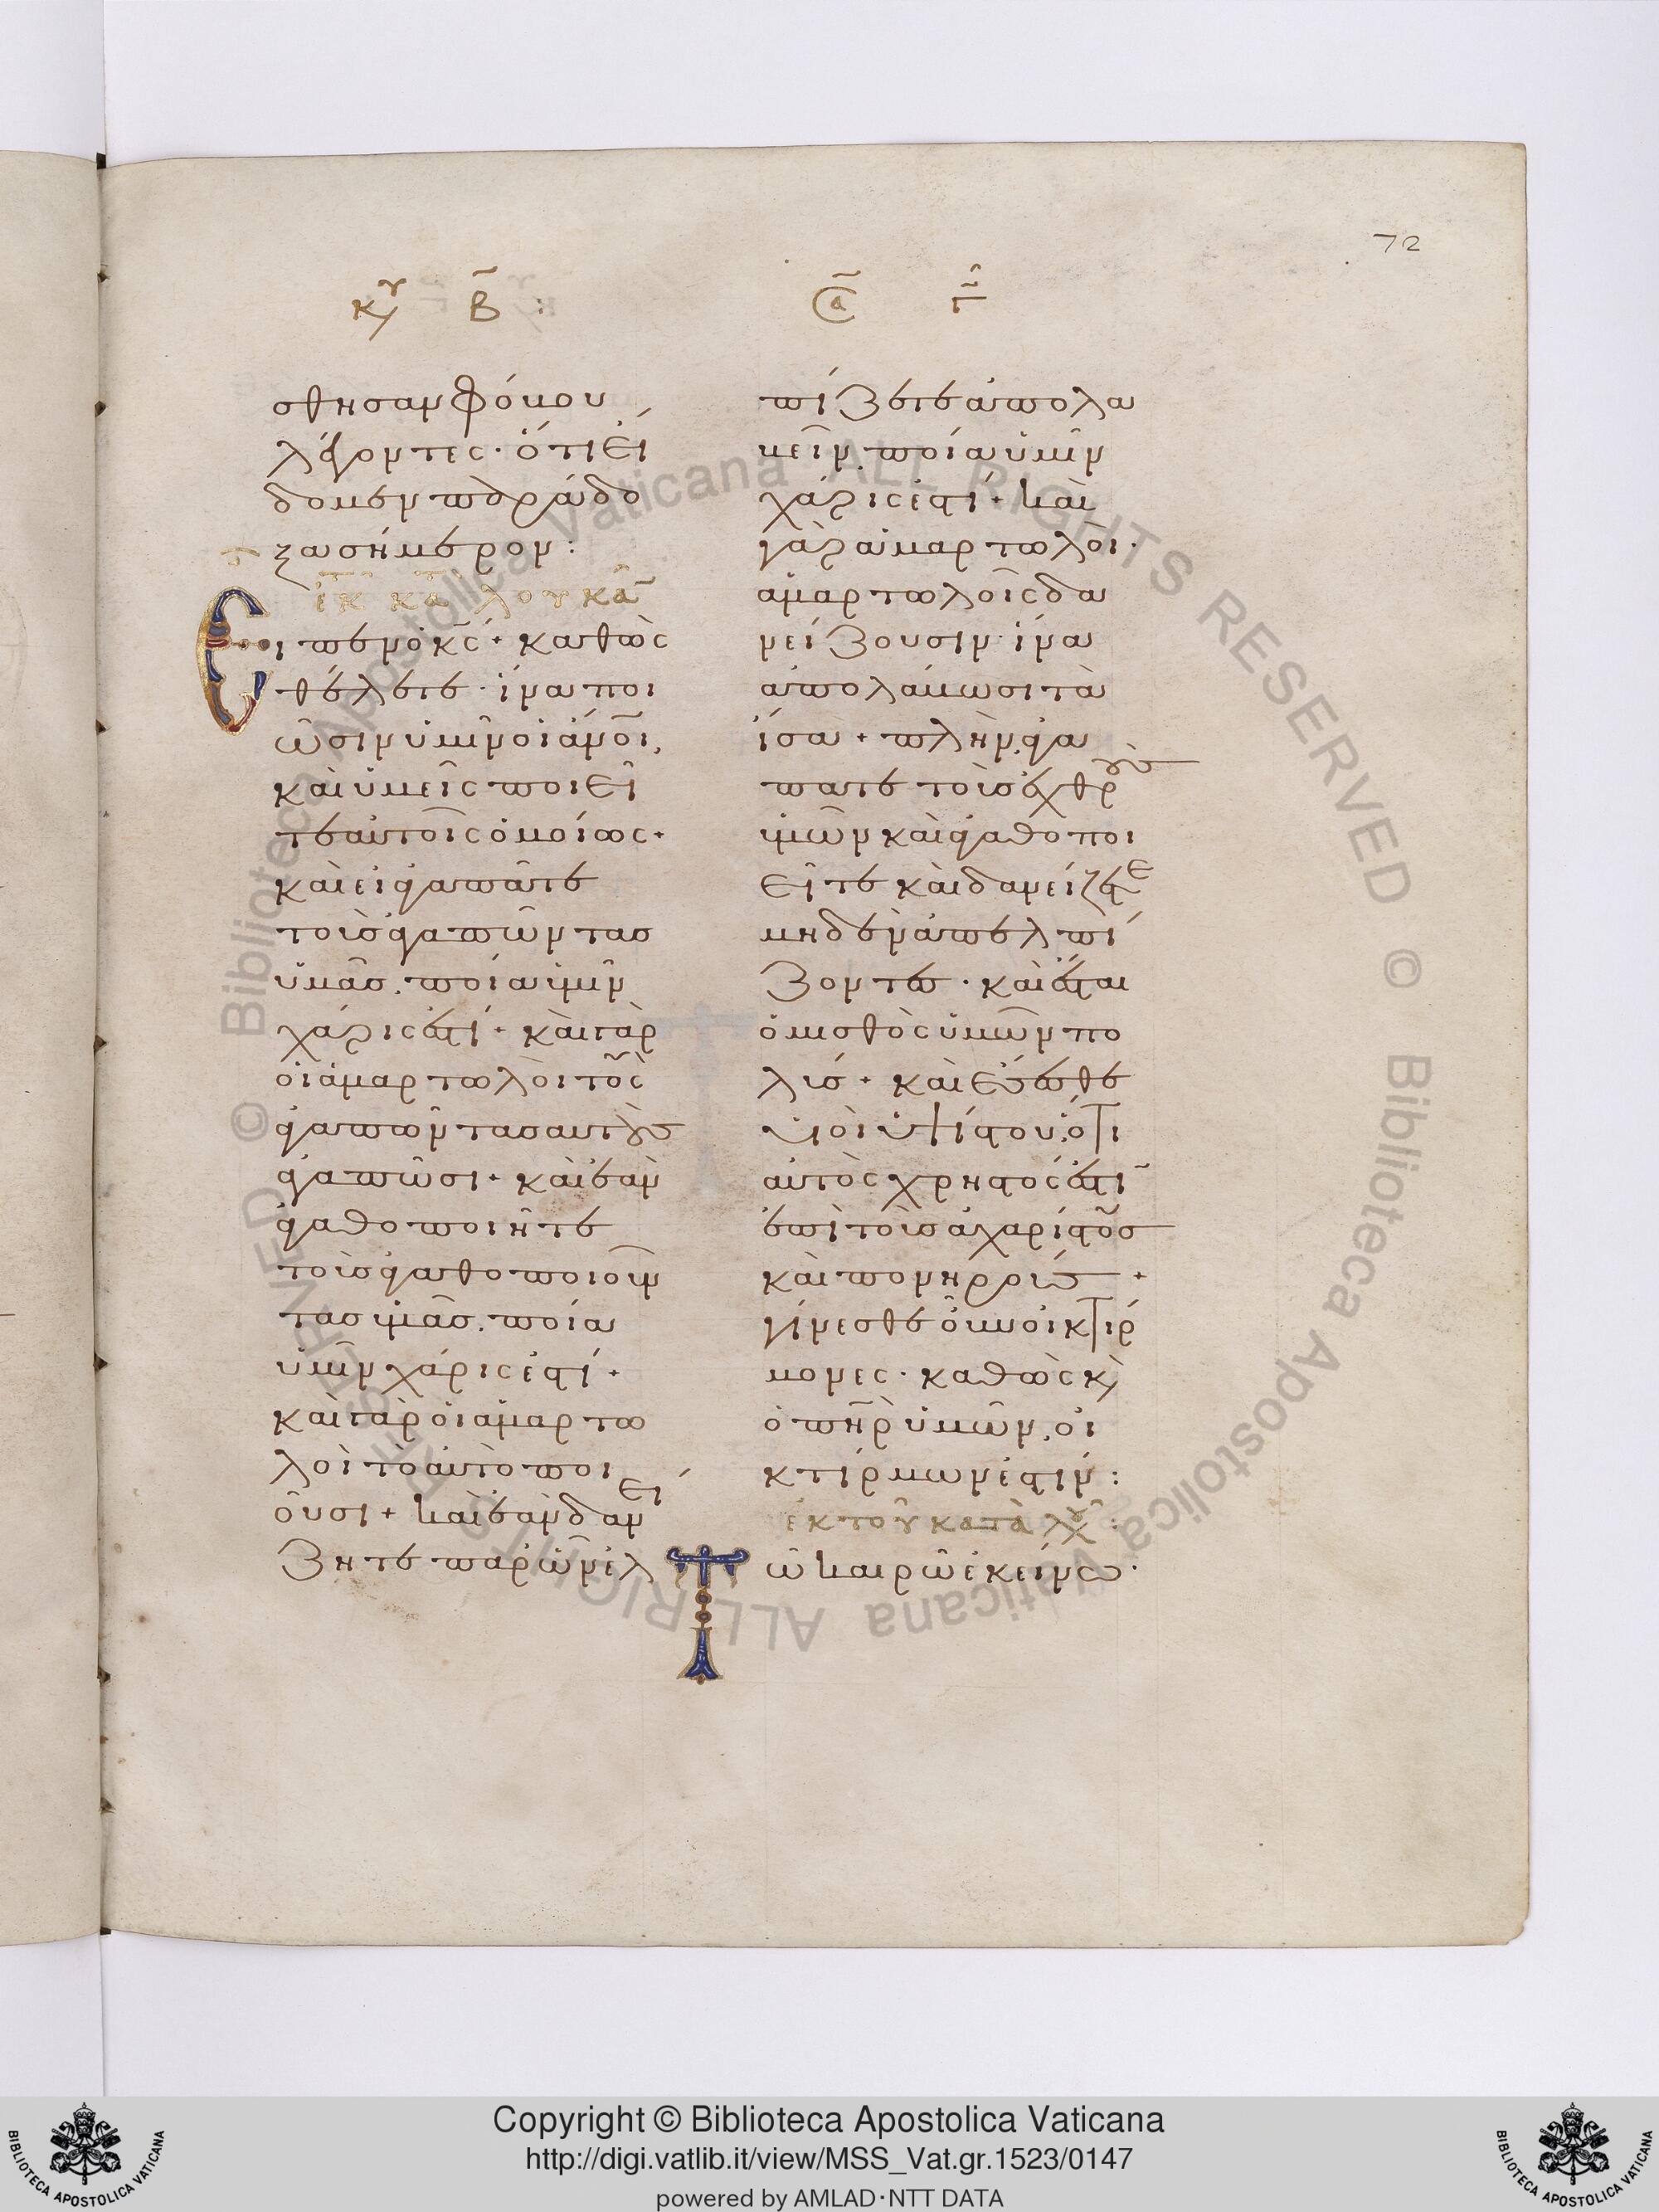 72
κυ Β :
Σα Γ
σθησαν φόβου
λέγοντες· ὅτι εἴ
δομεν παράδο
ξα σήμερον :
ἐκ κατ λουκᾶ
Εἶπεν ὁ κς· καθὼς
θέλετε· ἵνα ποι
ῶσιν ὑμῖν οἱ ἄνοι,
καὶ ὑμεῖς ποιεῖ
τε αὐτοῖς ὁμοίως·
καὶ εἰ ἀγαπᾶτε
τοὺς ἀγαπῶντας
ὑμᾶς, ποία ὑμῖν
χάρις ἐστί· καὶ γὰρ
οἱ ἁμαρτωλοὶ τοὺς
ἀγαπῶντας αὐτοὺς
ἀγαπῶσι· καὶ ἐὰν
ἀγαθοποιῆτε
τοὺς ἀγαθοποιοῦν
τας ὑμᾶς, ποία
ὑμῖν χάρις ἐστί·
καὶ γὰρ οἱ ἁμαρτω
λοὶ τὸ αὐτὸ ποι
οῦσι + καὶ ἐὰν δανεί
ζητε παρ' ὧν ἐλ
πίζετε ἀπολα
βεῖν, ποία ὑμῖν
χάρις ἐστί· καὶ
γὰρ ἁμαρτωλοὶ·
ἁμαρτωλοῖς δα
νείζουσιν· ἵνα
ἀπολάβωσι τὰ
ἴσα + πλὴν ἀγα
πᾶτε τοὺς ἐχθροὺς
ὑμῶν καὶ ἀγαθοποι
εῖτε καὶ δανείζετε
μηδὲν ἀπελπί
ζοντες· καὶ ἔσται
ὁ μισθὸς ὑμῶν πο
λύς + καὶ ἔσεσθε
υἱοὶ ὑψίστου, ὅτι
αὐτὸς χρηστός ἐστι
ἐπὶ τοὺς ἀχαρίστους
καὶ πονηρούς +
γίνεσθε οὖν οἰκτίρ
μονες· καθὼς κὶ
ὁ πηρ ὑμῶν, οἰ
κτίρμων ἐστίν :
ἐκ τοῦ κατὰ λουκ :
Τῶ καιρῶ ἐκείνω·
Copyright © Biblioteca Apostolica Vaticana
http://digi.vatlib.it/view/MSS_Vat.gr.1523/0147
powered by AMLAD·NTT DATA